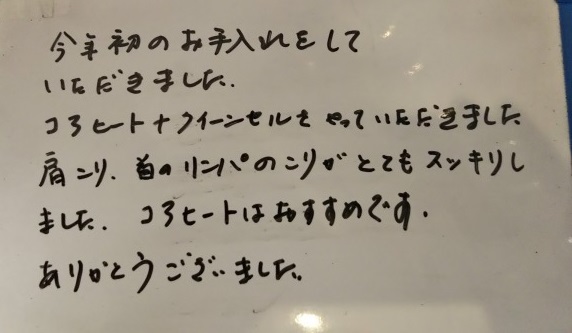 今年初のお手入れをして
いただきました.
コラヒート+クイーンセルをやっていただきました
肩こり、首のリンパのこりがとてもスッキリし
ました. コラヒートはおすすめです.
ありがとうございました.